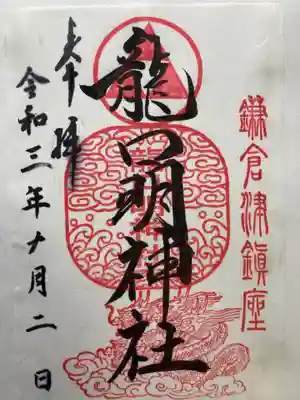 鎌倉津鎮座
龍口明神社
奉拝
令和三年十月二日